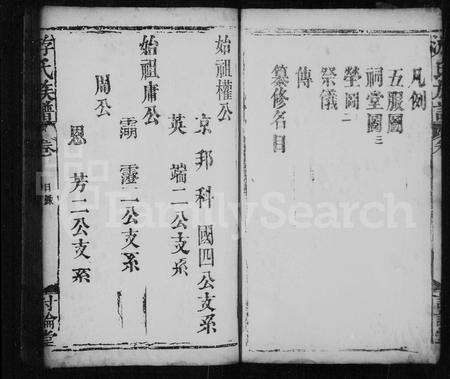 凡例
五服圖
祠堂圖三
塋圖二
祭儀
傳
纂修名目
始祖權公
京邦科國四公支系
英端二公支系
始祖庸公
霸靈二公支系
周公
恩芳二公支系
游氏族譜 卷 目錄
討論堂
FamilySearch